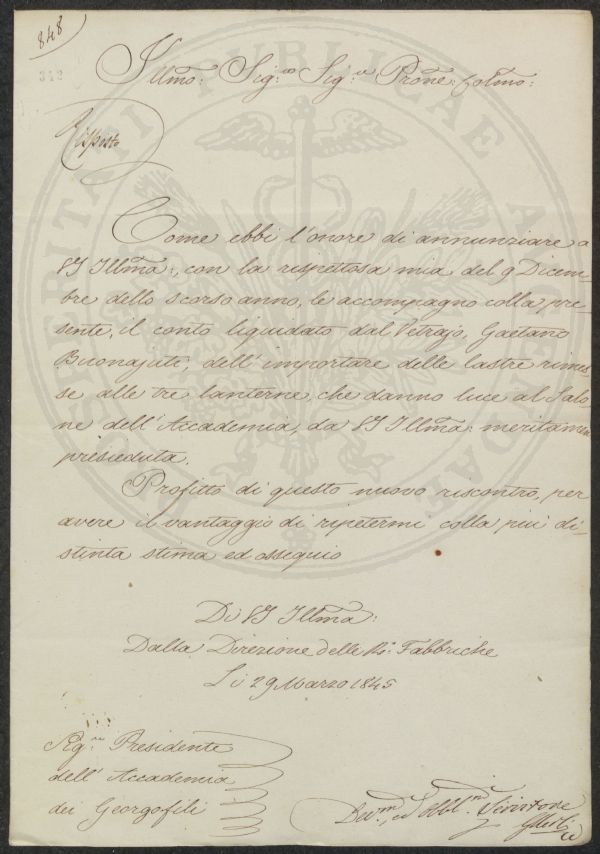 848
312
Illmo: Sig:re Sig:re Prone: Colmo:
Risposto
Come ebbi l'onore di annunziare a
VS Illma:, con la rispettosa mia del 9 Dicem=
bre dello scorso anno, le accompagno colla pre=
sente, il conto liquidato dal Vetrajo, Gaetano
Buonajuti, dell'importare delle lastre rimes=
se alle tre lanterne, che danno luce al Salo=
ne dell'Accademia, da VS Illma: meritamen
presieduta.
Profitto di questo nuovo riscontro, per
avere il vantaggio di ripetermi colla più di=
stinta stima ed ossequio
Di VS Illma:
Dalla Direzione delle Re: Fabbriche
Li 29 Marzo 1845
Sig:re Presidente
dell'Accademia
dei Georgofili
Dev:mo ed Obbl:mo Servitore
PROSPERITATI PUBLICAE AUGENDAE